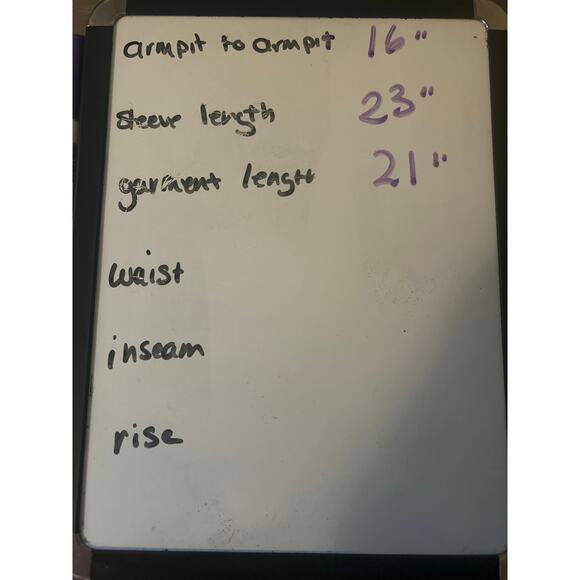 armpit to armpit 16"
sleeve length 23"
garment length 21"
waist
inseam
rise